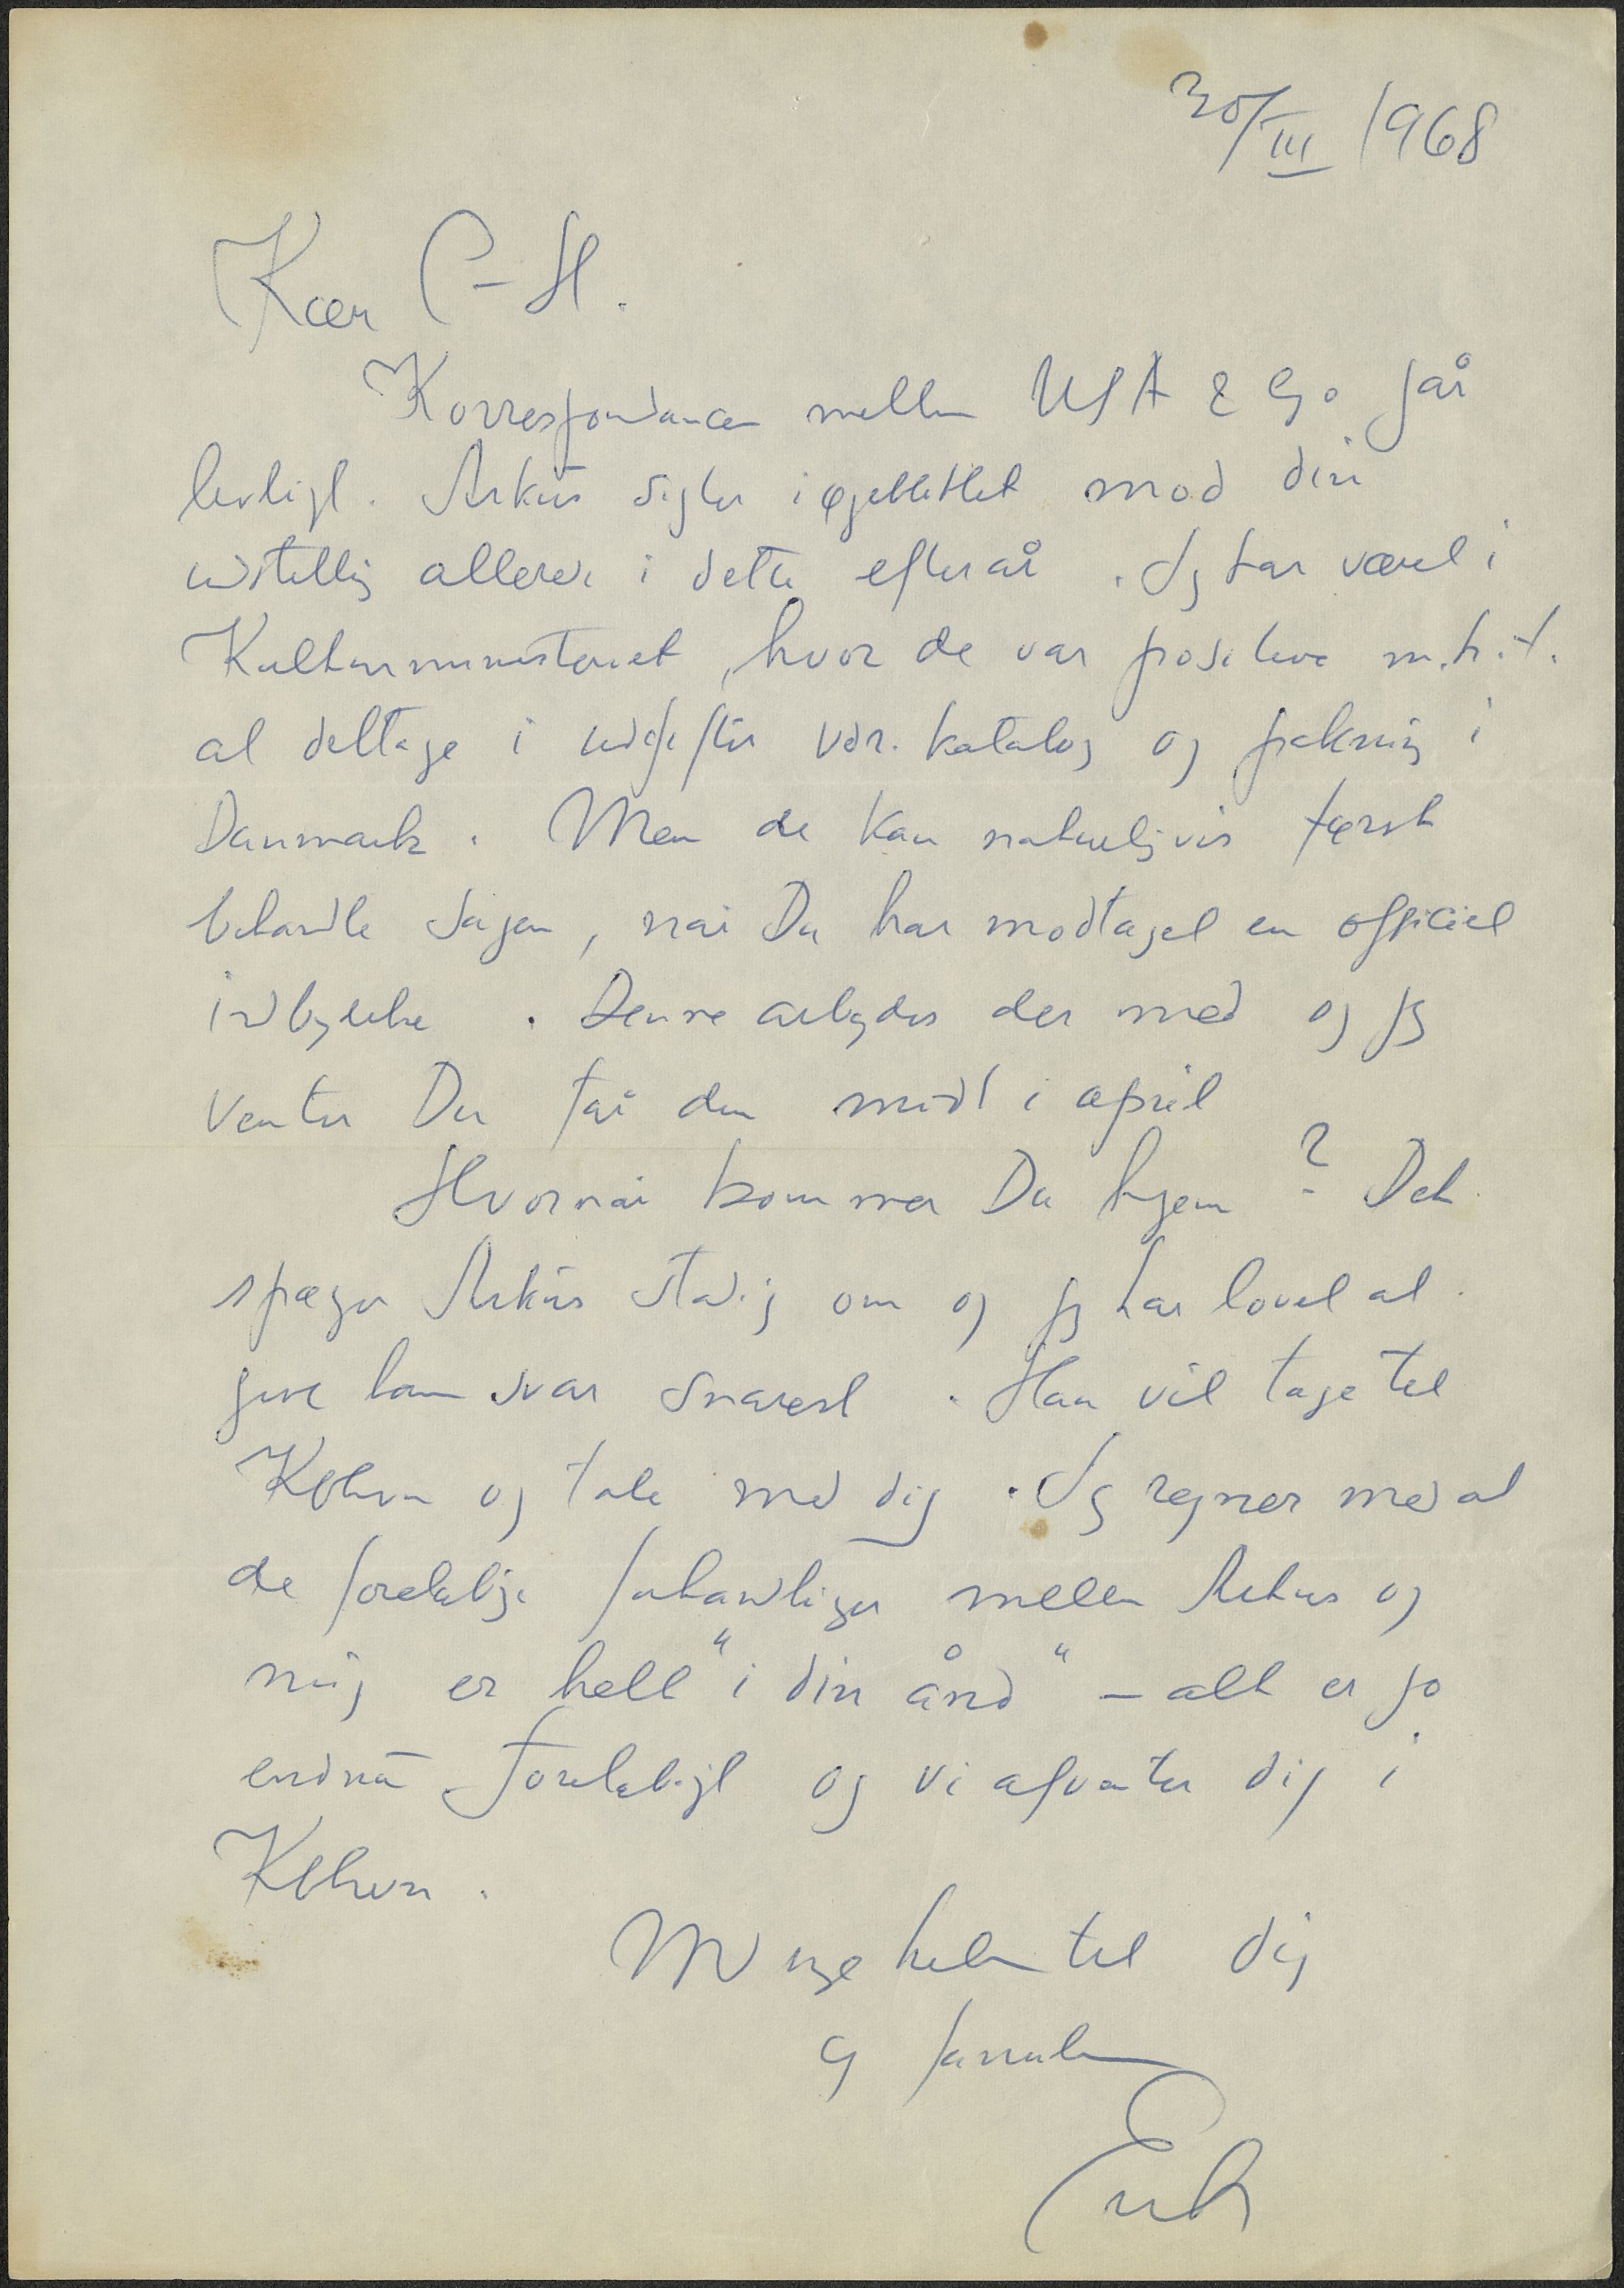 30/III 1968
Kær P-H.
Korrespondancen mellem USA & Go går
livligt. Arkus sigter i øjeblikket mod din
udstilling allerede i dette efterår. Jeg har været i
Kulturministeriet, hvor de var positive m.h.t.
at deltage i udgifter vdr. katalog og pakning i
Danmark. Men de kan naturligvis først
behandle sagen, når Du har modtaget en officiel
indbydelse. Denne arbejdes der med og jeg
venter Du får den midt i april
Hvornår kommer Du hjem? Det
spørger Arkus stadig om og jeg har lovet at
give ham svar snarest. Han vil tage til
Kbhvn og tale med dig. Jeg regner med at
de foreløbige forhandlinger mellem Arkus og
mig er helt "i din ånd" - alt er jo
endnu foreløbigt og vi afventer dig i
Kbhvn.
Mange hilsner til dig
og familien
Erik